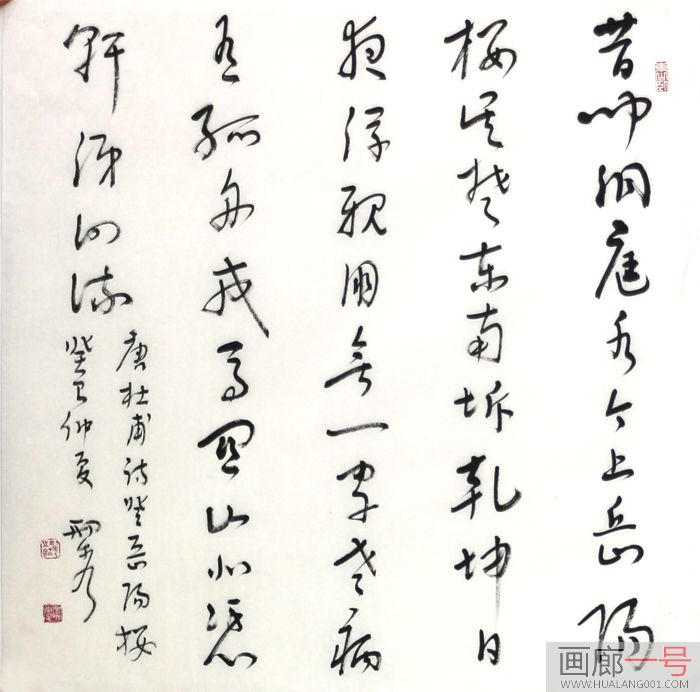 昔闻洞庭水今上岳阳
楼吴楚东南坼乾坤日
夜浮親朋無一字老病
有孤舟戎马関山北凭
轩涕泗流
唐杜甫诗登岳阳楼
癸巳仲夏
画廊一号
WWW.HUALANG001.COM